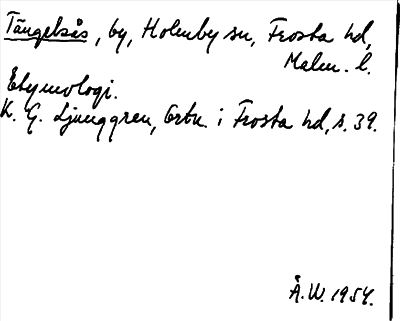 Tängelsås, by, Holmby sn, Frosta hd,
Malm. l.
Etymologi.
K. G. Ljunggren, Ortn. i Frosta hd, s. 39.
Å. W. 1954.